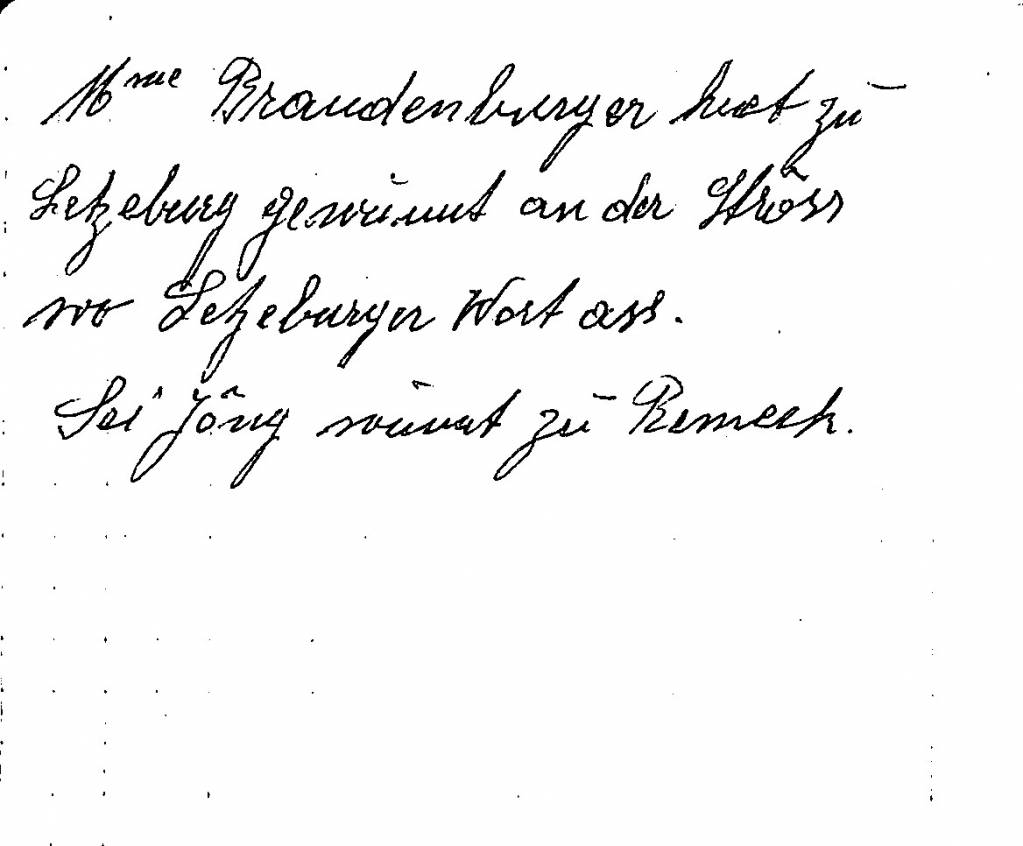 Mme Brandenburger huet zu
Letzeburg gewunnt an der Ströss
wo Letzeburger Wort ass.
Sei Jông wunnt zu Remech.